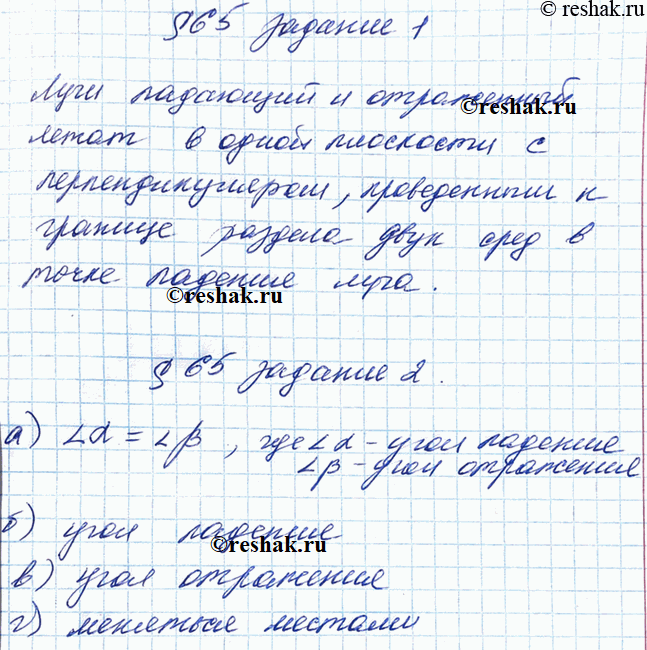 ©reshak.ru
§65 задание 1
Лучи падающий и отраженный
©reshak.ru
лежат в одной плоскости с
перпендикуляром, проведенным к
границе раздела двух сред в
точке падение луча.
©reshak.ru
§ 65 задание 2.
а) ∠α = ∠β , где ∠α - угол падение
∠β - угол отражение
б) угол падение
©reshak.ru
в) угол отражение
г) меняться местами